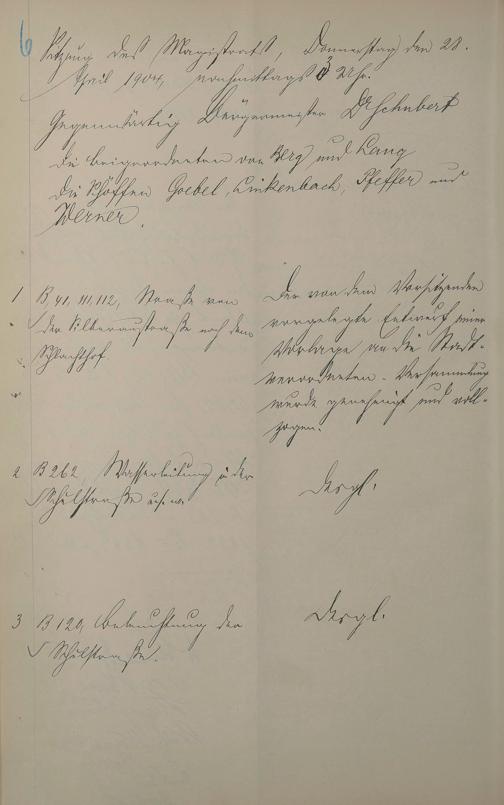 6
Sitzung des Magistrats, Donnerstag den 28.
April 1904, vormittags Uhr.
Gegenwärtig Bürgermeister Dr Schubert
die Beigeordneten von Berg und Lang
die Schöffen Goebel, Linkenbach, Pfeffer und
Werner.
1 B 41, III, 112, Straße von
der Silberaustraße nach dem
Schlachthof.
Der von dem Vorsitzenden
vorgelegte Entwurf einer
Vorlage an die Stadt-
verordneten-Versammlung
wurde genehmigt und voll-
zogen.
2 B 262, Wasserleitung in der
Schulstraße u.s.w.
Desgl.
3 B 120, Beleuchtung der
Schulstraße.
Desgl.